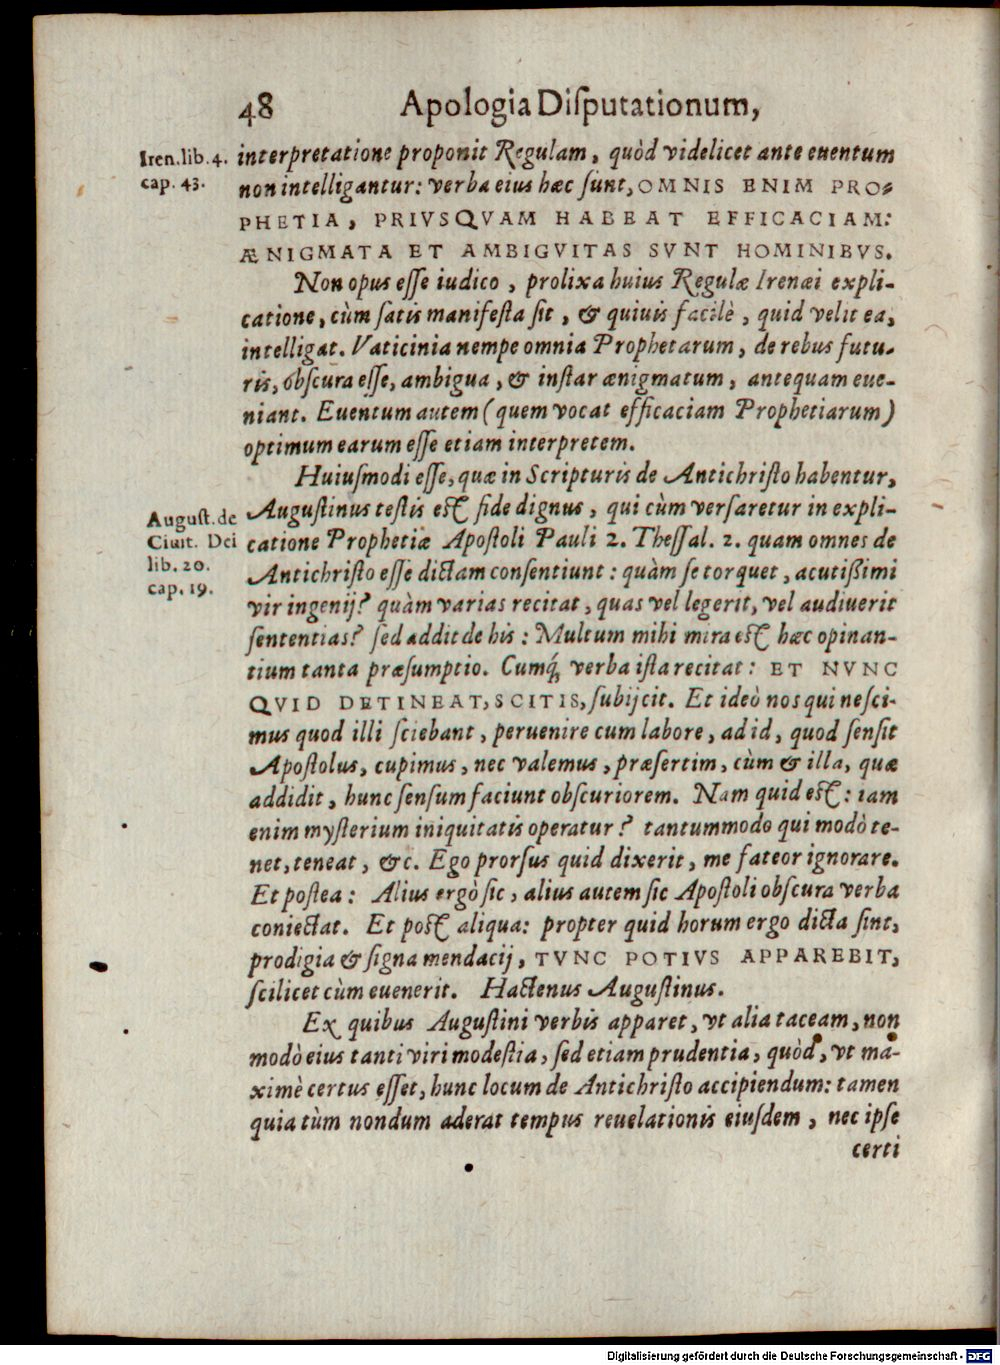 48 Apologia Disputationum,
Iren.lib.4.
cap. 43.
interpretatione proponit Regulam, quòd videlicet ante euentum
non intelligantur: verba eius hæc sunt, OMNIS ENIM PRO-
PHETIA, PRIVSQVAM HABEAT EFFICACIAM:
ÆNIGMATA ET AMBIGVITAS SVNT HOMINIBVS.
Non opus esse iudico, prolixa huius Regulæ Irenæi expli-
catione, cùm satis manifesta sit, & quiuis facilè, quid velit ea,
intelligat. Vaticinia nempe omnia Prophetarum, de rebus futu-
ris, obscura esse, ambigua, & instar ænigmatum, antequam eue-
niant. Euentum autem (quem vocat efficaciam Prophetiarum)
optimum earum esse etiam interpretem.
Huiusmodi esse, quæ in Scripturis de Antichristo habentur,
August. de
Ciuit. Dei
lib. 20.
cap. 19.
Augustinus testis est fide dignus, qui cùm versaretur in expli-
catione Prophetiæ Apostoli Pauli 2. Thessal. 2. quam omnes de
Antichristo esse dictam consentiunt: quàm se torquet, acutißimi
vir ingenij? quàm varias recitat, quas vel legerit, vel audiuerit
sententias? sed addit de his: Multum mihi mira est hæc opinan-
tium tanta præsumptio. Cumq́; verba ista recitat: ET NVNC
QVID DETINEAT, SCITIS, subijcit. Et ideò nos qui nesci-
mus quod illi sciebant, peruenire cum labore, ad id, quod sensit
Apostolus, cupimus, nec valemus, præsertim, cùm & illa, quæ
addidit, hunc sensum faciunt obscuriorem. Nam quid est: iam
enim mysterium iniquitatis operatur? tantummodo qui modò te-
net, teneat, &c. Ego prorsus quid dixerit, me fateor ignorare.
Et postea: Alius ergò sic, alius autem sic Apostoli obscura verba
coniectat. Et post aliqua: propter quid horum ergo dicta sint,
prodigia & signa mendacij, TVNC POTIVS APPAREBIT,
scilicet cùm euenerit. Hactenus Augustinus.
Ex quibus Augustini verbis apparet, vt alia taceam, non
modò eius tanti viri modestia, sed etiam prudentia, quòd, vt ma-
ximè certus esset, hunc locum de Antichristo accipiendum: tamen
quia tùm nondum aderat tempus reuelationis eiusdem, nec ipse
certi
Digitalisierung gefördert durch die Deutsche Forschungsgemeinschaft - DFG